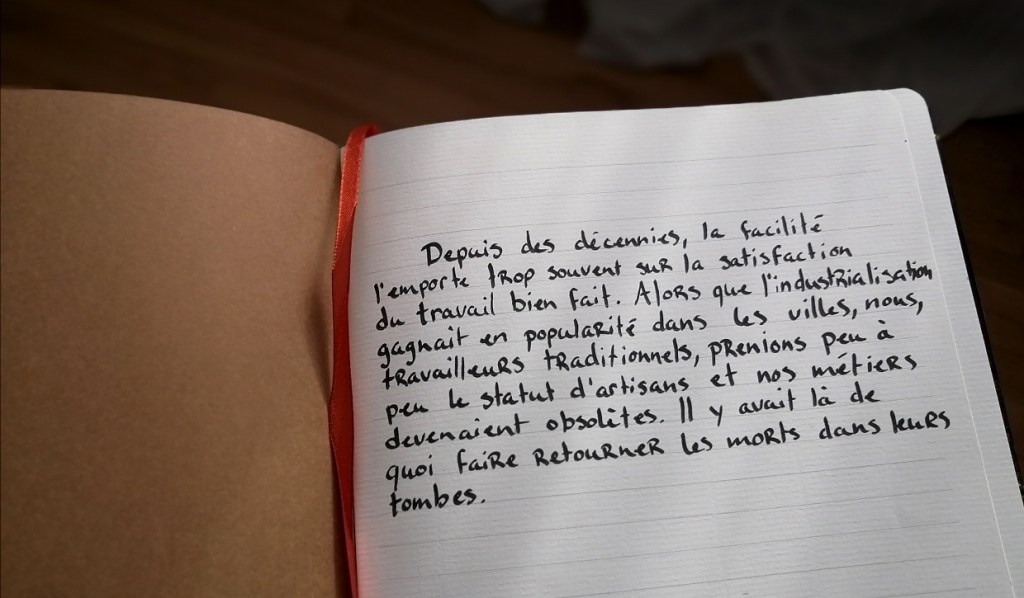 Depuis des décennies, la facilité
l'emporte trop souvent sur la satisfaction
du travail bien fait. Alors que l'industrialisation
gagnait en popularité dans les villes, nous,
travailleurs traditionnels, prenions peu à
peu le statut d'artisans et nos métiers
devenaient obsolètes. Il y avait là de
quoi faire retourner les morts dans leurs
tombes.